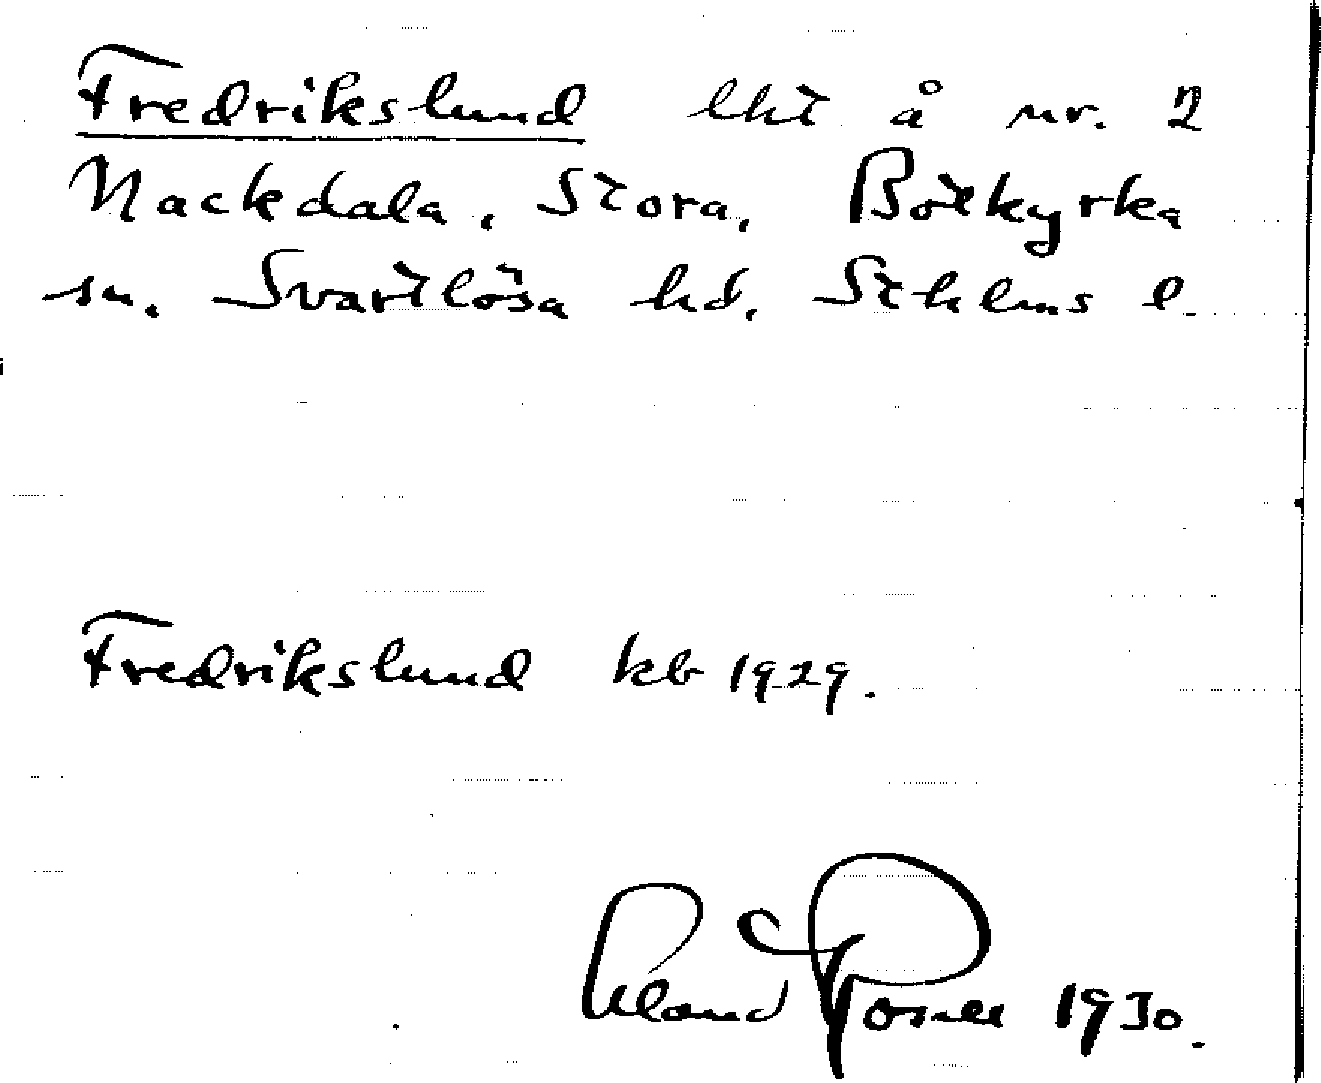 Fredrikslund lht å nr. 2
Nackdala, Stora, Botkyrka
sn. Svartlösa hd. Sthlms l.
Fredrikslund kb 1929.
1930.